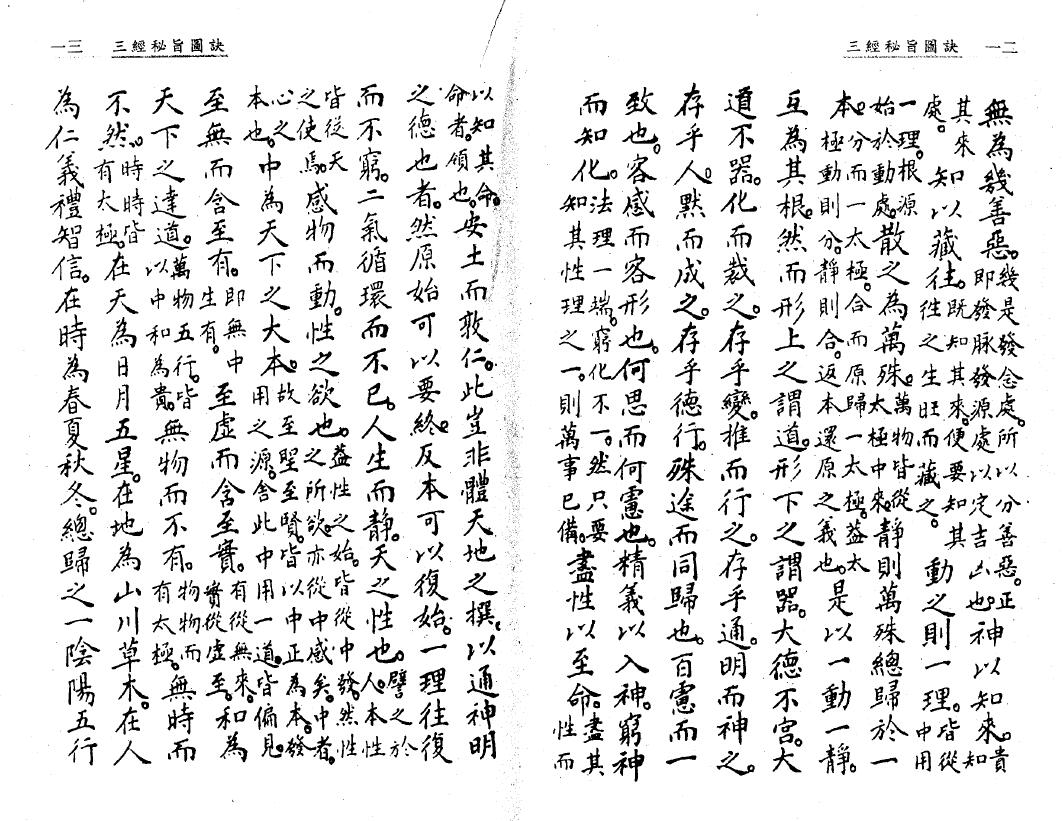 三經秘旨圖訣 一二
無為幾善惡。幾是發念處。所以分善惡。正即發脉發源處以定吉凶也神以知來。貴知
其來處。知以藏往。既知其來。便要知其往之生旺而藏之。動之則一理。皆從中用
一理。根源始於動處。散之為萬殊。萬物皆從太極中來。靜則萬殊總歸於一
本。分而一太極。合而原歸一太極。益太極動則分。靜則合。返本還原之義也。是以一動一靜。
互為其根。然而形上之謂道。形下之謂器。大德不宮。大
道不器。化而裁之。存乎變。推而行之。存乎通。明而神之。
存乎人。默而成之。存乎德行。殊途而同歸也。百慮而一
致也。客感而客形也。何思而何慮也。精義以入神。窮神
而知化。法理一端。窮化不一。然只要知其性理之一。則萬事已備。盡性以至命。盡其性而
三經秘旨圖訣 一三
以知其命。命者。領也。安土而敦仁。此豈非體天地之撰。以通神明
之德也者。然原始可以要終。反本可以復始。一理往復
而不窮。二氣循環而不已。人生而靜。天之性也。譬之於人。本性
皆從天之使焉。感物而動。性之欲也。益性之始。皆從中發。然性之所欲。亦從中感矣。中者。
心之本也。中為天下之大本。故至聖至賢。皆以中正為本。發用之源。舍此中用一道。皆偏見。
至無而含至有。即無中生有。至虛而含至實。有從無來。實從虛至。和為
天下之達道。萬物五行。皆以中和為貴。無物而不有。物物而有太極。無時而
不然。時時皆有太極。在天為日月五星。在地為山川草木。在人
為仁義禮智信。在時為春夏秋冬。總歸之一陰陽五行